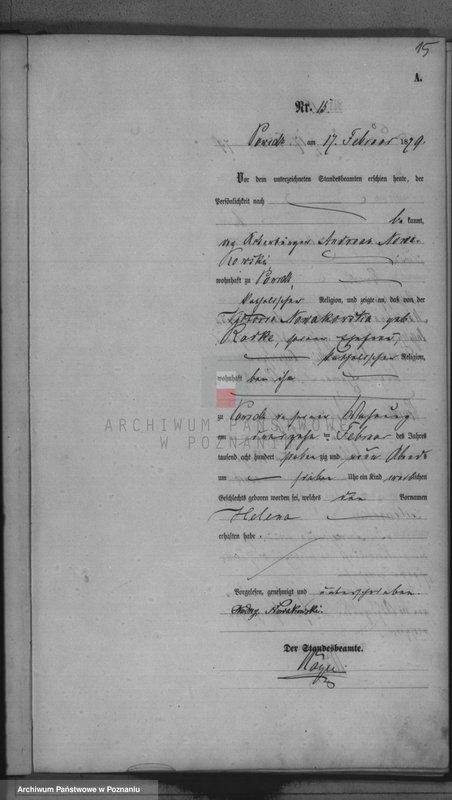 15
A.
Nr. 15
am 17. Februar 1879.
Vor dem unterzeichneten Standesbeamten erschien heute, der
Persönlichkeit nach
be kannt,
der Ackerbürger Andreas Nowa-
kowski
wohnhaft zu
katholischer Religion, und zeigte an, daß von der
Nowakowska geb.
seiner Ehefrau,
katholischer Religion,
wohnhaft bei ihm
zu in seiner Wohnung
am Februar des Jahres
tausend acht hundert sieben zig und neun Abends
um sieben Uhr ein Kind weiblichen
Geschlechts geboren worden sei, welches den Vornamen
Helena
erhalten habe.
Vorgelesen, genehmigt und unterschrieben.
Nowakowski.
Der Standesbeamte.
ARCHIWUM PAŃSTWOWE
W POZNANIU
Archiwum Państwowe w Poznaniu